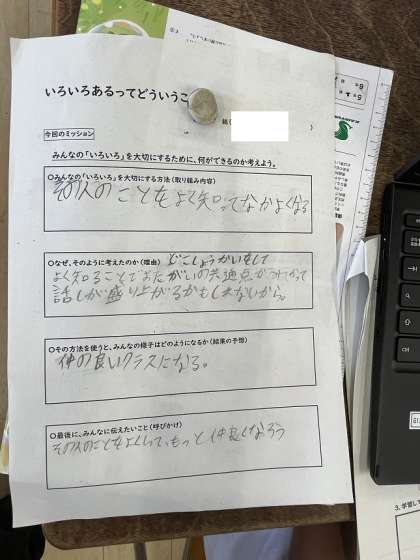 いろいろあるってどういうこ
今回のミッション
みんなの「いろいろ」を大切にするために、何ができるのか考えよう。
○みんなの「いろいろ」を大切にする方法（取り組み内容）
その人のことをよく知ってなかよくなる
○なぜ、そのように考えたのか（理由）
どこしょうかいをして
よく知ることでおたがいの共通点がみつかって
話しが盛り上がるかもしれないから。
○その方法を使うと、みんなの様子はどのようになるか（結果の予想）
仲の良いクラスになる。
○最後に、みんなに伝えたいこと（呼びかけ）
その人のことをよくしって、もっと仲良くなろう
3. 学習して